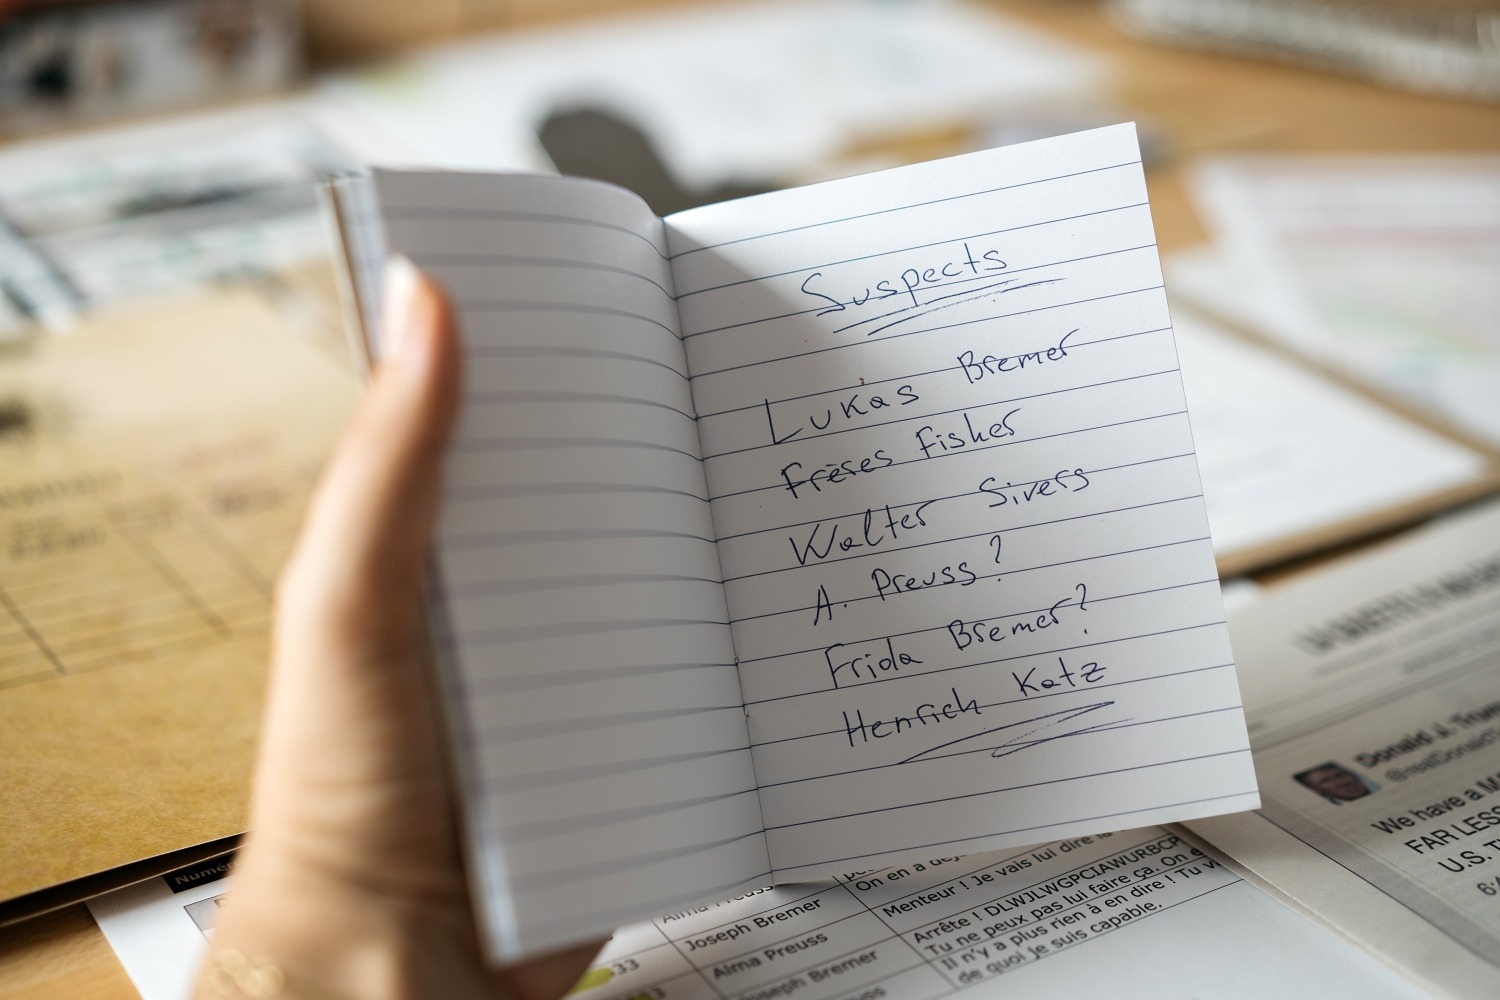 Suspects
Lukas Bremer
Frères Fisher
Walter Sivers
A. Preuss ?
Frida Bremer?
Henrich Katz
Donald J. Trum
@realDonaldT
We have a M
FAR LESS
U.S. T
6/
Numér
On en a déj
Menteur ! Je vais lui dire la
Arrête ! DLWJLWGPCIAWURBCP
Tu ne peux pas lui faire ça. On e
Il n'y a plus rien à en dire ! Tu v
de quoi je suis capable.
Alma Preuss
Joseph Bremer
Alma Preuss
Joseph Bremer
33